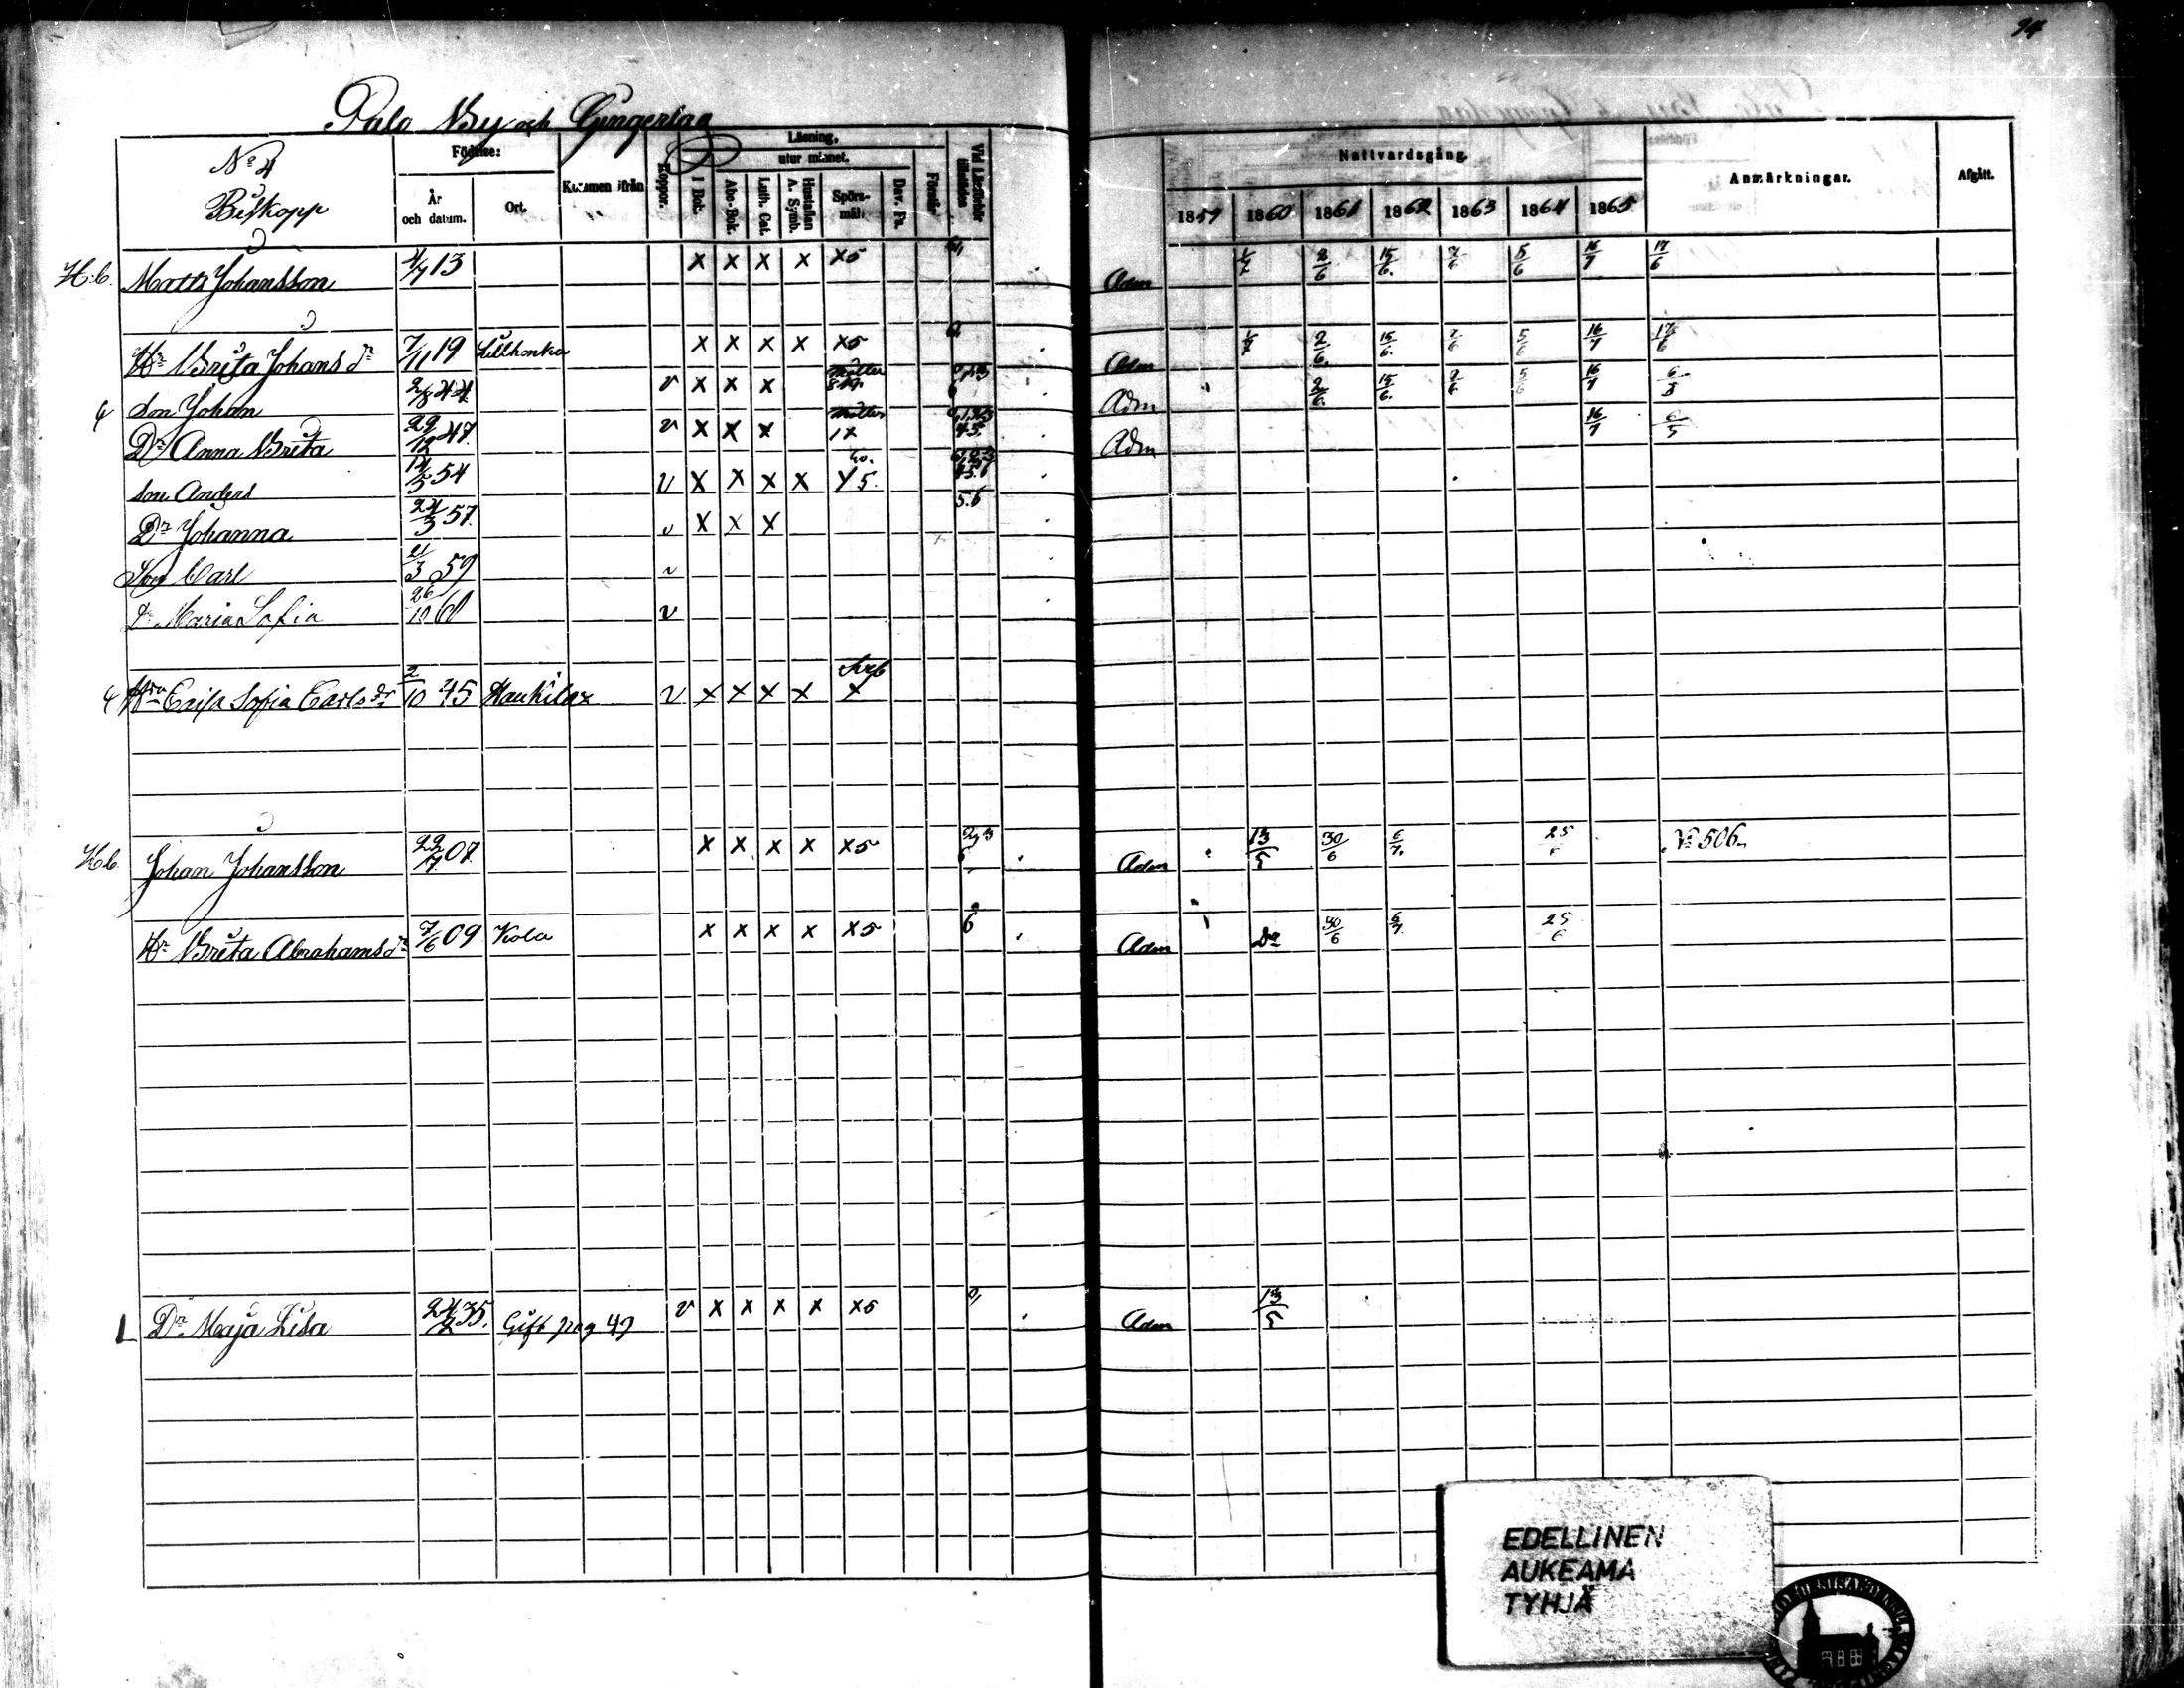 94
Palo By och Gingerlax
No 4
Biskopp
Födelse:
År och datum.
Ort.
Kommen ifrån
Koppor.
Läsning,
utur minnet.
I Bok.
Abc-Bok.
Luth. Cat.
Hustaflan A. Symb.
Spörsmål.
Dav. Ps.
Förstår
Nattvardsgång.
1859 1860 1861 1862 1863 1864 1865.
Anmärkningar.
Afgått.
H.b. Matts Johansson 4/7 13 x x x x x5 Adm 1/7 2/6 15/6. 7/6 5/6 16/7 17/6
Hu Brita Johans dr 7/11 19 Lillhonka x x x x x5 6 Adm 1/7 2/6. 15/6. 7/6 5/6 16/7 17/6
Son Johan 2/8 44 v x x x Adm 2/6. 15/6. 7/6 5/6 16/7 6/5
Dr Anna Brita 29/12 47. v x x x Adm 16/7 6/5
Son Anders 54 v x x x x x5.
Dr Johanna 24/3 57. v x x x 5.6
Son Carl 21/3 59 v
Dr Maria Sofia 26/10 60 v
Hu Caisa Sofia Carls dr 2/10 45 Haukilax v x x x x x
H.b. Johan Johansson 22/7 07. x x x x x5 Adm 13/5 30/6 6/7. 25/6 No 506.
Hu Brita Abrahams dr 7/6 09 Kola x x x x x5 6 Adm Do 30/6 6/7. 25/6
L Dr Maja Lisa 24/2 35. Gift pag 49 v x x x x x5 Adm 13/5
EDELLINEN
AUKEAMA
TYHJÄ